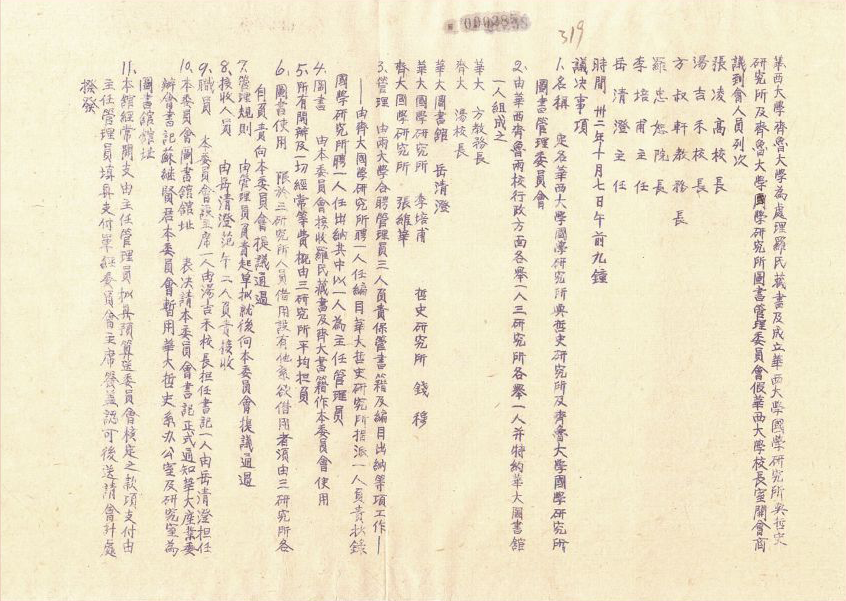 000288
319
華西大學齊魯大學為處理羅氏藏書及成立華西大學國學研究所與哲史
研究所及齊魯大學國學研究所圖書管理委員會假華西大學校長室開會商
議到會人員列次
張凌高校長
湯吉禾校長
方叔軒教務長
羅忠恕院長
李培甫主任
岳清澄主任
時間 卅二年十月七日午前九鐘
議決事項
1.名稱 定名華西大學國學研究所與哲史研究所及齊魯大學國學研究所
圖書管理委員會
2.由華西齊魯兩校行政方面各舉一人三研究所各舉一人并特約華大圖書館
一人組成之
華大 方教務長
齊大 湯校長
華大圖書館 岳清澄
華大國學研究所 李培甫 哲史研究所 錢穆
齊大國學研究所 張維華
3.管理 由兩大學合聘管理員三人負責保管書籍及編目出納等項工作—
—由齊大國學研究所聘一人任編目華大哲史研究所指派一人負責抄錄
國學研究所聘一人任出納其中以一人為主任管理員
4.圖書 由本委員會接收羅氏藏書及齊大書籍作本委員會使用
5.所有開辦及一切經常等費概由三研究所平均担負
6.圖書使用 限於三研究所人員借用設有他系欲借用者須由三研究所各
自負責向本委員會提議通過
7.管理規則 由管理員負責起草擬就後向本委員會提議通過
8.接收人員 由岳清澄范午二人負責接收
9.職員 本委員會設主席一人由湯吉禾校長担任書記一人由岳清澄担任
10.本委員會圖書館館址 表決請本委員會書記正式通知華大產業委
辦會書記蘇繼賢君本委員會暫用華大哲史系辦公室及研究室為
圖書館館址
11.本館經常開支由主任管理員擬具預算送委員會核定之款項支付由
主任管理員填具支付單經委員會主席簽蓋認可後送請會計處
撥發